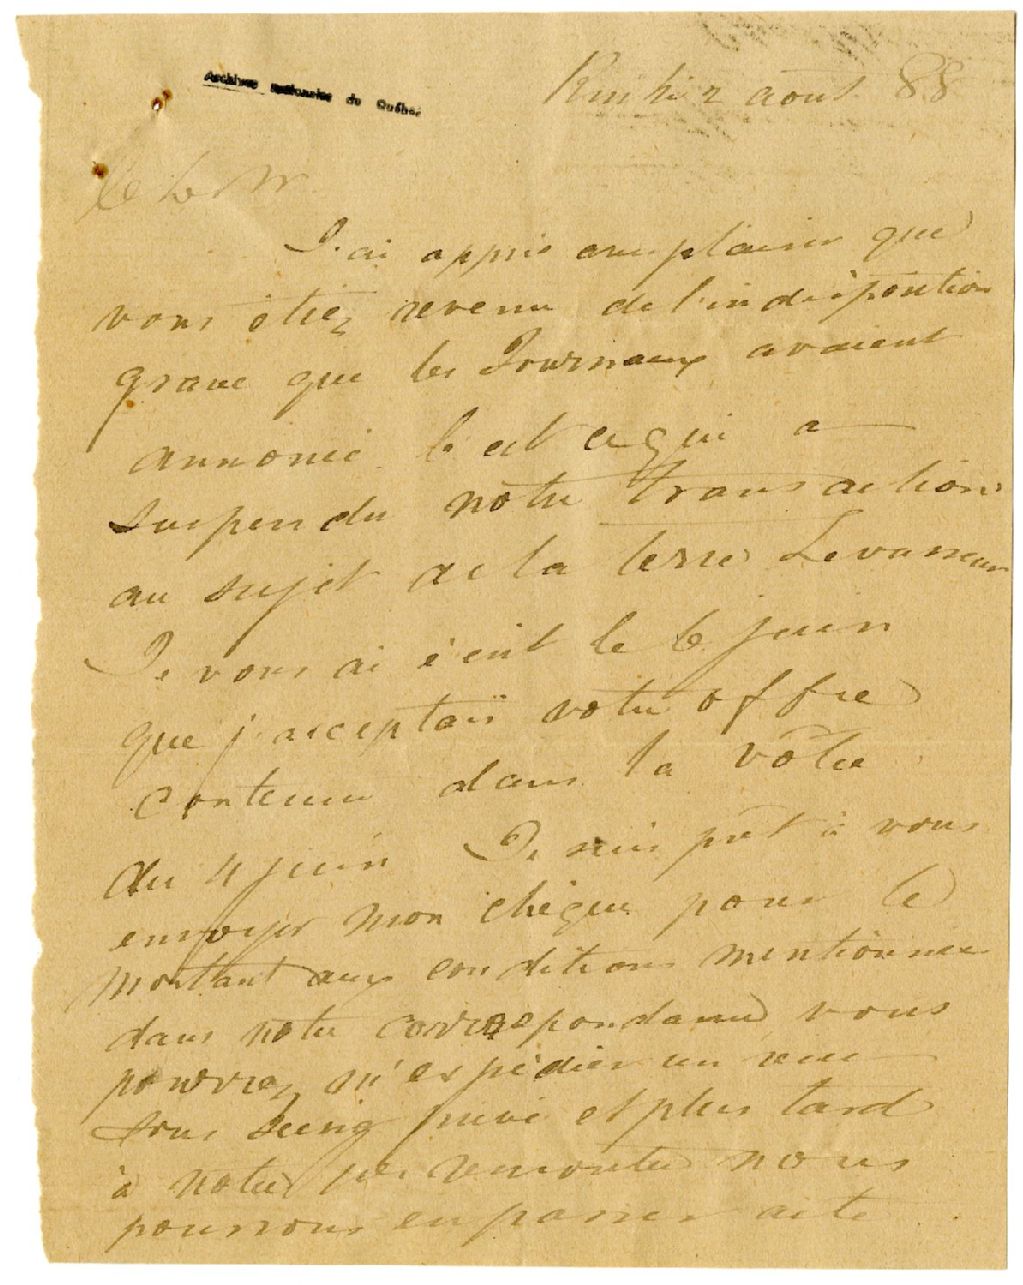 Archives nationales du Québec
Rimki 2 août 88
J'ai appris avec plaisir que
vous étiez revenu de l'indisposition
grave que les Journaux avaient
annoncé C'est ce qui a
suspendu notre transaction
au sujet de la terre Levasseur
Je vous ai écrit le 6 juin
que j'acceptais votre offre
contenu dans la vôtre
du 4 juin Je suis prêt à vous
envoyer mon chèque pour le
montant aux conditions mentionnées
dans notre correspondance vous
pourrez m'expédier un recu
sous seing privé et plus tard
à notre rencontre nous
pourrons en passer acte